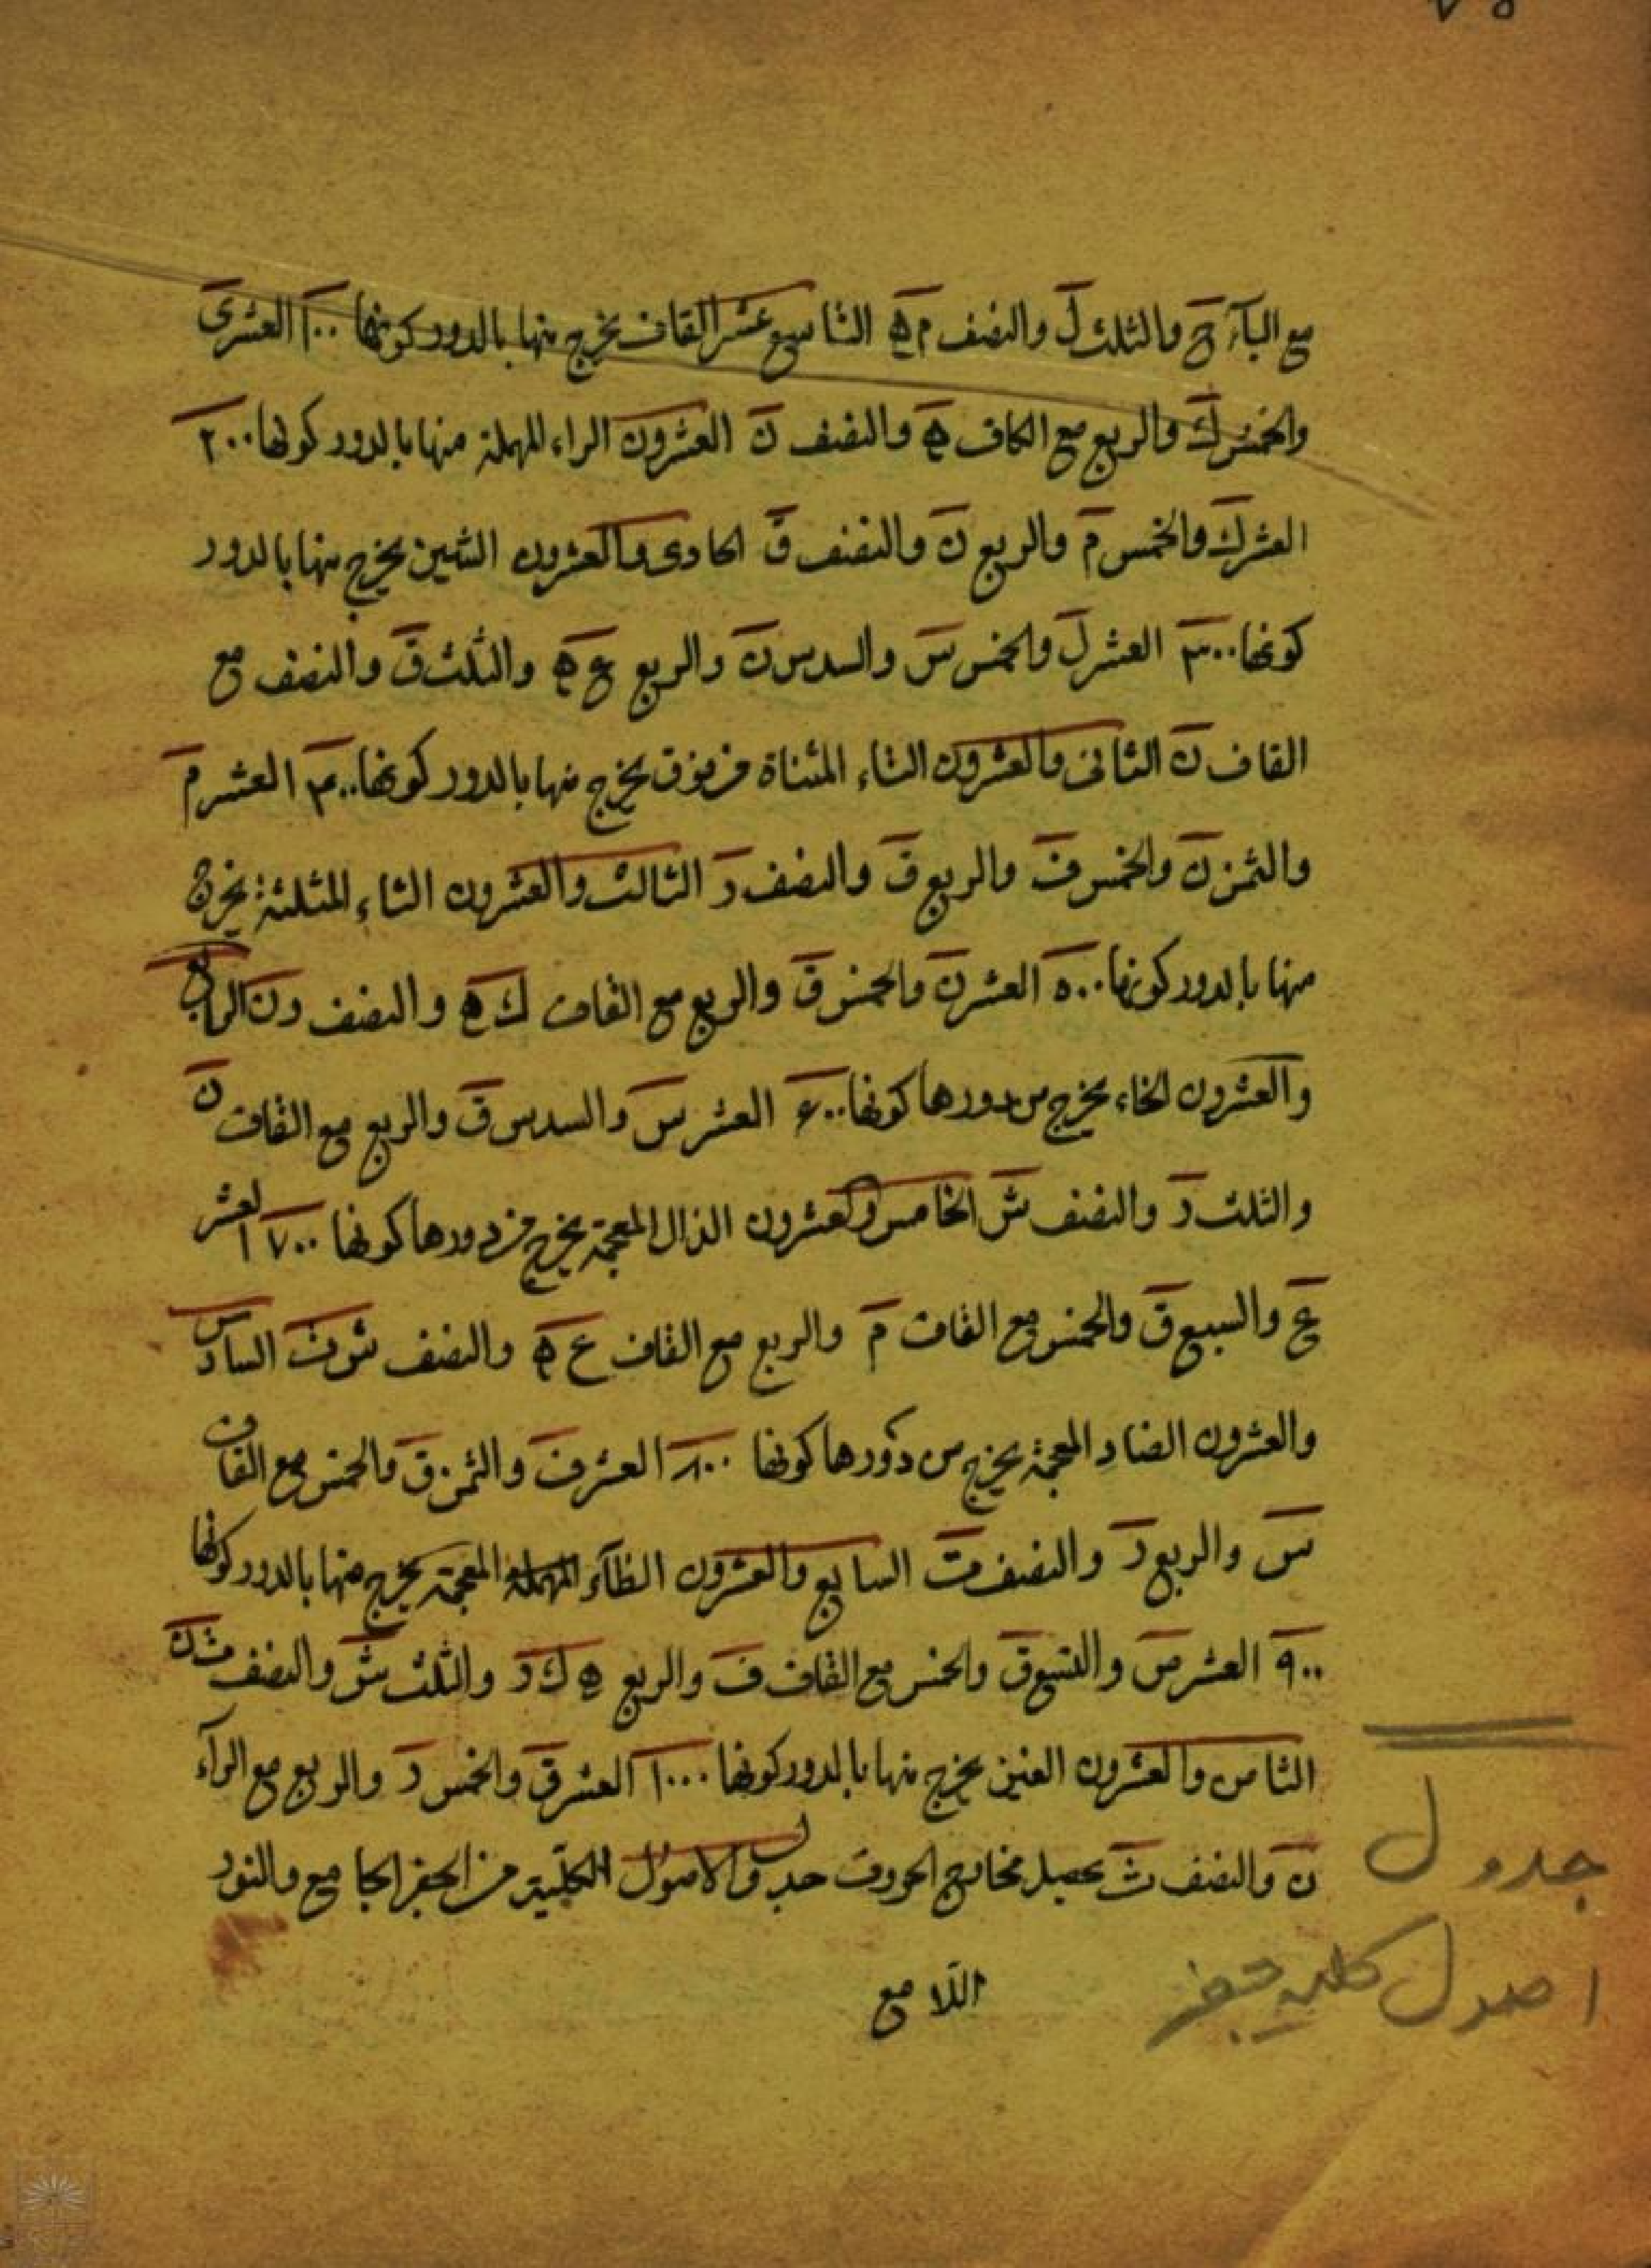 ٧٥
مع الباء ح والثلث ل والنصف م ه التاسع عشر القاف يخرج منها بالدور كونها ١٠٠ العشر ى
والخمس ك والربع مع الكاف ه والنصف ن العشرون الراء المهملة منها بالدور كونها ٢٠٠
العشر ك والخمس م والربع ن والنصف ق الحادى والعشرون الشين يخرج منها بالدور
كونها ٣٠٠ العشر ل والخمس س والسدس ن والربع ع ه والثلث ق والنصف مع
القاف ن الثانى والعشرون التاء المثناة من فوق يخرج منها بالدور كونها ٤٠٠ العشر م
والثمن ن والخمس ف والربع ق والنصف ر الثالث والعشرون الثاء المثلثة يخرج
منها بالدور كونها ٥٠٠ العشر ن والخمس ق والربع مع القاف ك ه والنصف ر ن الرابع
والعشرون الخاء يخرج من دورها كونها ٦٠٠ العشر س والسدس ق والربع مع القاف ن
والثلث ر والنصف ش الخامس والعشرون الذال المعجمة يخرج من دورها كونها ٧٠٠ العشر
ع والسبع ق والخمس مع القاف م والربع مع القاف ع ه والنصف ش ن السادس
والعشرون الضاد المعجمة يخرج من دورها كونها ٨٠٠ العشر ف والثمن ق والخمس مع القاف
س والربع ر والنصف ت السابع والعشرون الظاء المهملة المعجمة يخرج منها بالدور كونها
٩٠٠ العشر ص والتسع ق والخمس مع القاف ف والربع ه ك ر والثلث ش والنصف ت ن
الثامن والعشرون الغين يخرج منها بالدور كونها ١٠٠٠ العشر ق والخمس ر والربع مع الراء
ن والنصف ث تحصيل مخارج الحروف جدول الاصول الكلية من الجفر الجامع والنور
اللامع
جدول
اصول كليه جفر